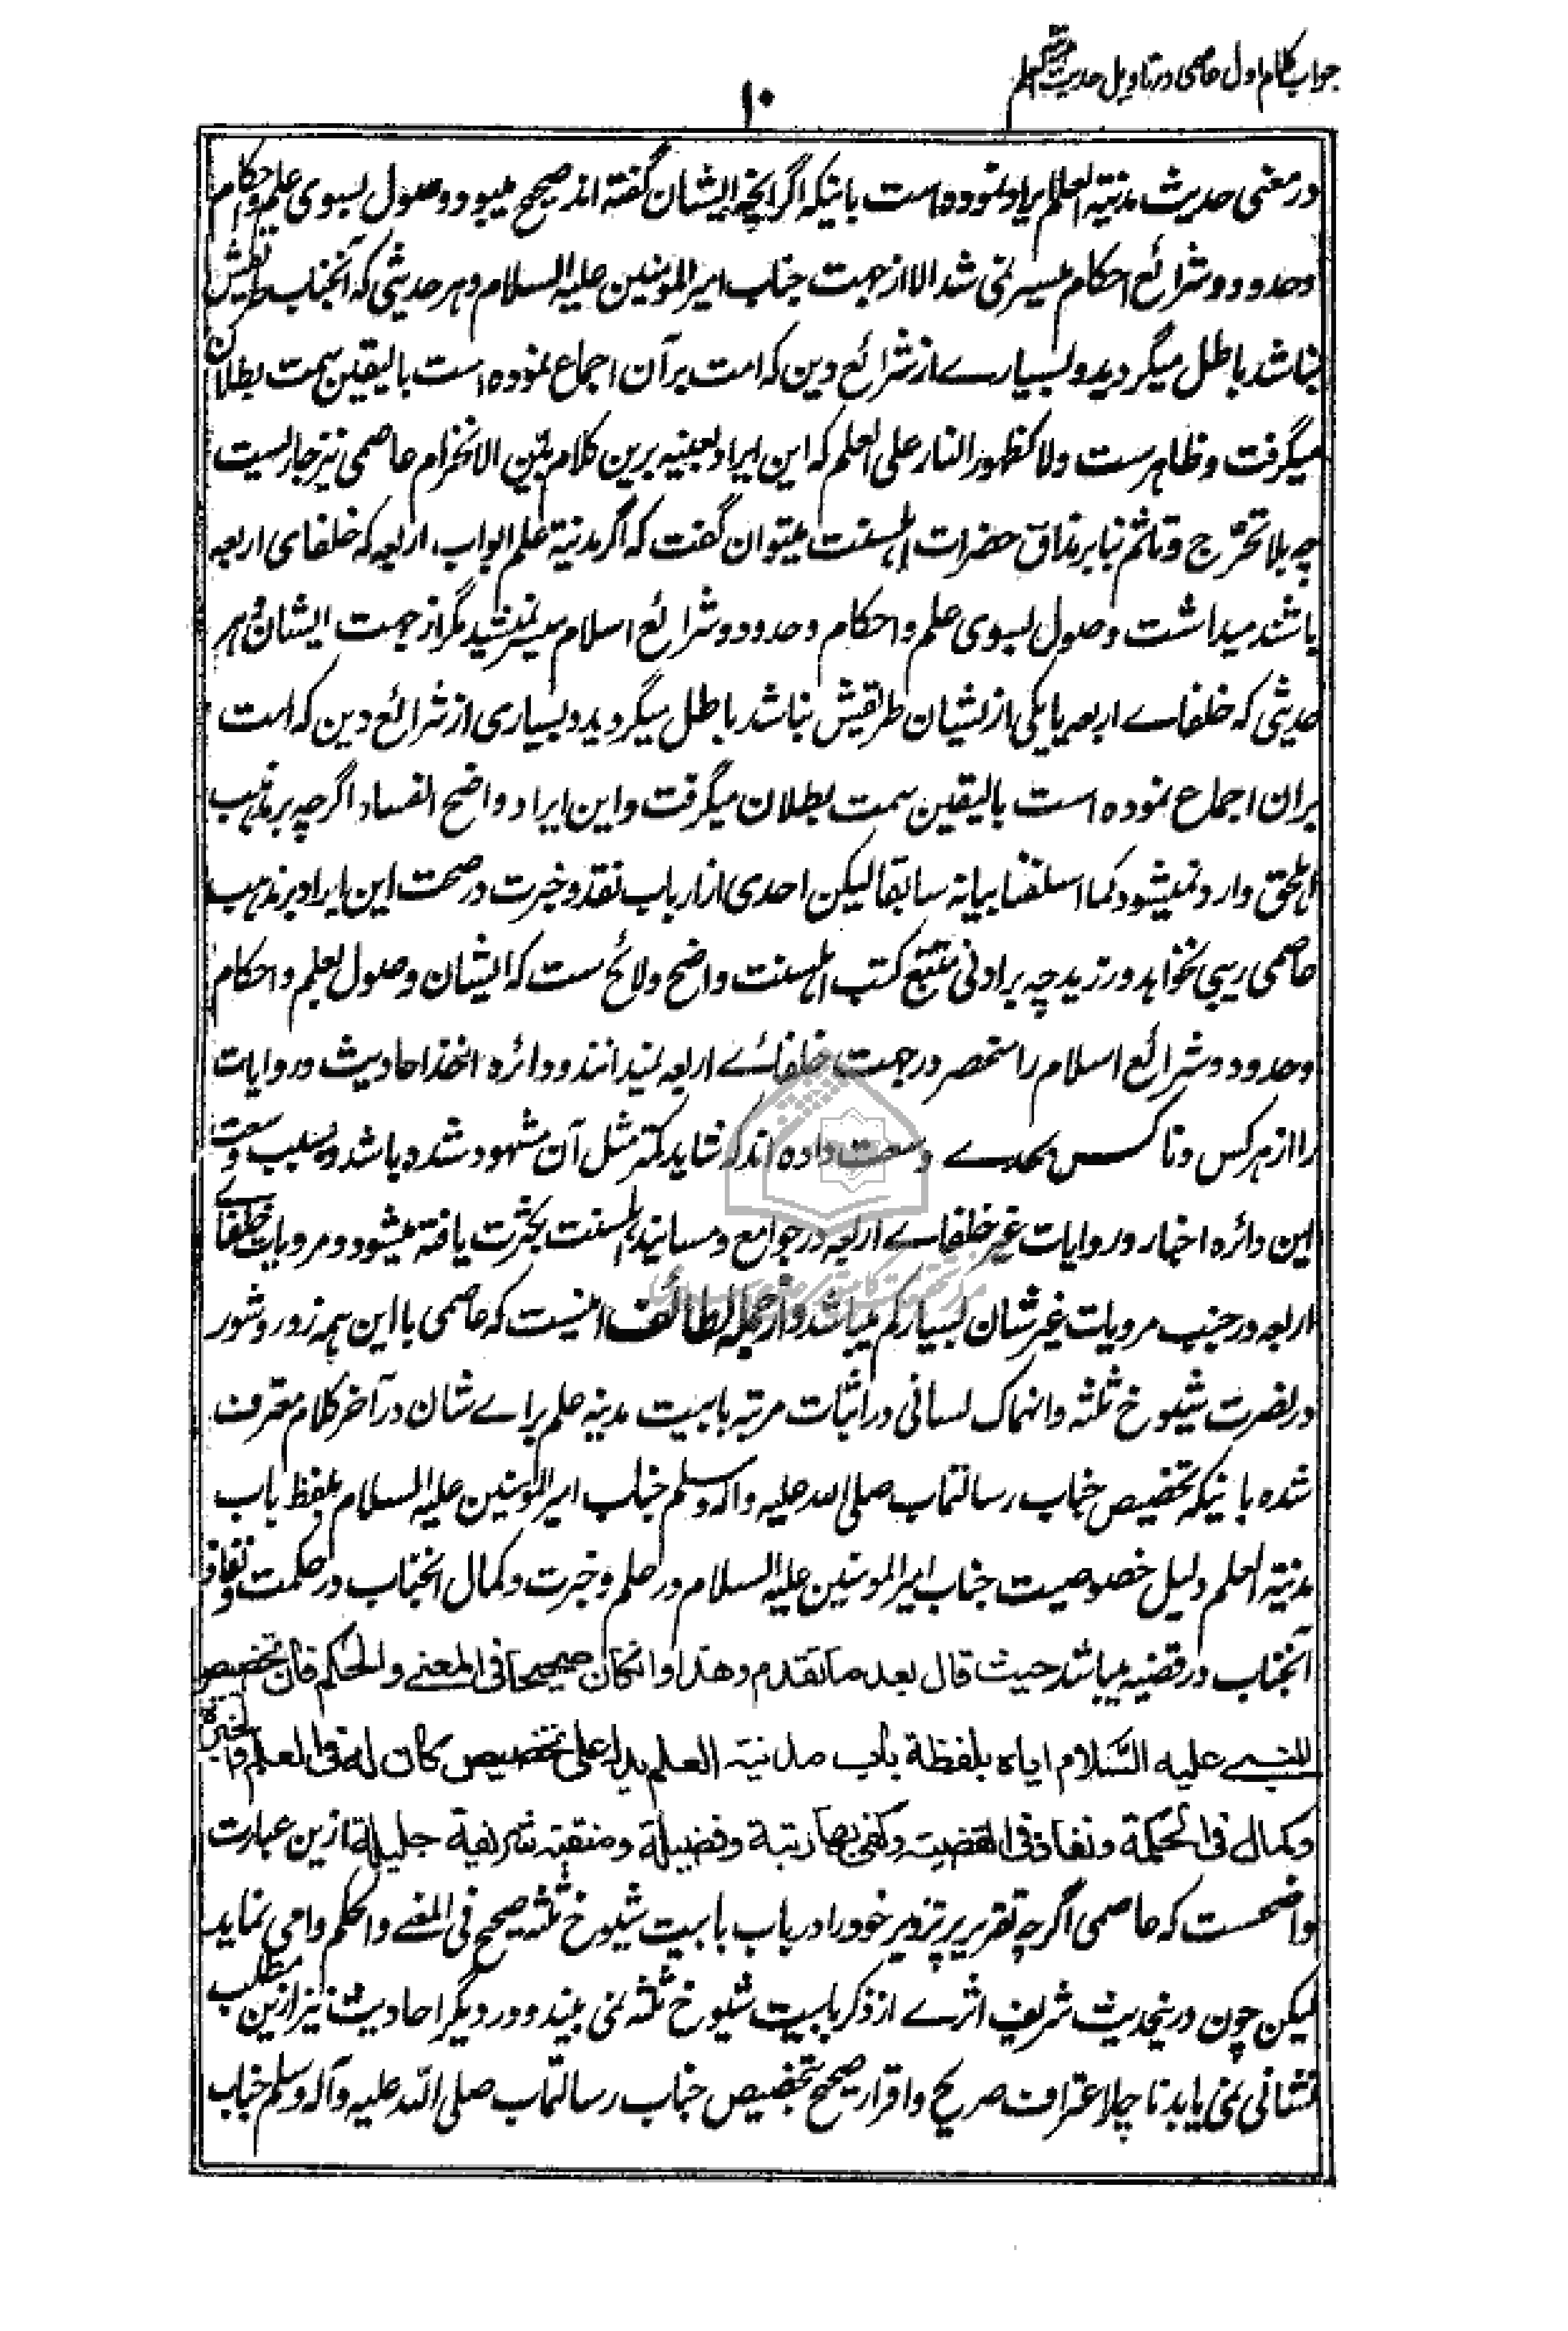 جواب کلام اول عاصمی در تاویل حدیث مدینة العلم
۱۰
در معنی حدیث مدینة العلم ایراد نموده است باینکه اگر آنچه ایشان گفته اند صحیح میبود وصول بسوی علم و احکام
و حدود و شرائع احکام میسر نمی شد الا از جهت جناب امیر المومنین علیه السلام و هر حدیثی که آنجناب طریقش
نباشد باطل میگردید و بسیارے از شرائع دین که امت بر آن اجماع نموده است بالیقین سمت بطلان
میگرفت و ظاهرست ولا کظهور النار علی العلم که این ایراد بعینه برین کلام بیّن الانخرام عاصمی نیز جاریست
چه بلا تحرّج و تاثم بنا بر مذاق حضرات اہلسنت میتوان گفت که اگر مدینة علم ابواب اربعه که خلفای اربعه
باشند میداشت وصول بسوی علم و احکام و حدود و شرائع اسلام میسر نمیشد مگر از جهت ایشان و هر
حدیثی که خلفاے اربعه یا یکی از یشان طریقش نباشد باطل میگردید و بسیاری از شرائع دین که امت
بران اجماع نموده است بالیقین سمت بطلان میگرفت و این ایراد واضح الفساد اگر چه بر مذهب
اہلحق وارد نمیشود کما اسلفنا بیانه سابقا لیکن احدی از ارباب نقد و خبرت در صحت این ایراد بر مذهب
عاصمی ریبی نخواهد ورزید چه بر ادنی متتبع کتب اہلسنت واضح و لائح ست که ایشان وصول بعلم و احکام
و حدود و شرائع اسلام را منحصر در جهت خلفاے اربعه نمیدانند و دائره اخذ احادیث و روایات
را از هر کس و ناکس بحدے وسعت داده اند که شاید کمتر مثل آن مشهود شده باشد و بسبب وسعت
این دائره اخبار و روایات غیر خلفاے اربعه در جوامع و مسانید اہلسنت بکثرت یافته میشود و مرویات خلفاے
اربعه در جنب مرویات غیرشان بسیار کم میباشد و از جمله لطائف اینست که عاصمی با این همه زور و شور
در نصرت شیوخ ثلثه و انهماک لسانی در اثبات مرتبه بابیت مدینه علم براے شان در آخر کلام معترف
شده باینکه تخصیص جناب رسالتماب صلی الله علیه واله وسلم جناب امیر المومنین علیه السلام بلفظ باب
مدینة العلم دلیل خصوصیت جناب امیر المومنین علیه السلام در علم و خبرت و کمال انجناب در حکمت و نفاذ
آنجناب در قضیه میباشد حیث قال بعد ما تقدم وهذا وان کان صحیحا فی المعنے والحکم فان تخصیص
النبے علیه السّلام ایاه بلفظة باب مدینة العلم یدل علی تخصیص کان له فی العلم والخبرة
وکمال فی الحکمة ونفاذ فی القضیة وکفی بها رتبة وفضیلة ومنقبة شریفة جلیلة ازین عبارت
واضحست که عاصمی اگر چه تقریر پر تزویر خود را در باب بابیت شیوخ ثلثه صحیح فی المعنے والحکم وامی نماید
لیکن چون درینحدیث شریف اثرے از ذکر بابیت شیوخ ثلثه نمی بیند و در دیگر احادیث نیز ازین مطلب
نشانی نمی یابد ناچار اعتراف صریح و اقرار صحیح بتخصیص جناب رسالتماب صلی الله علیه وآله وسلم جناب